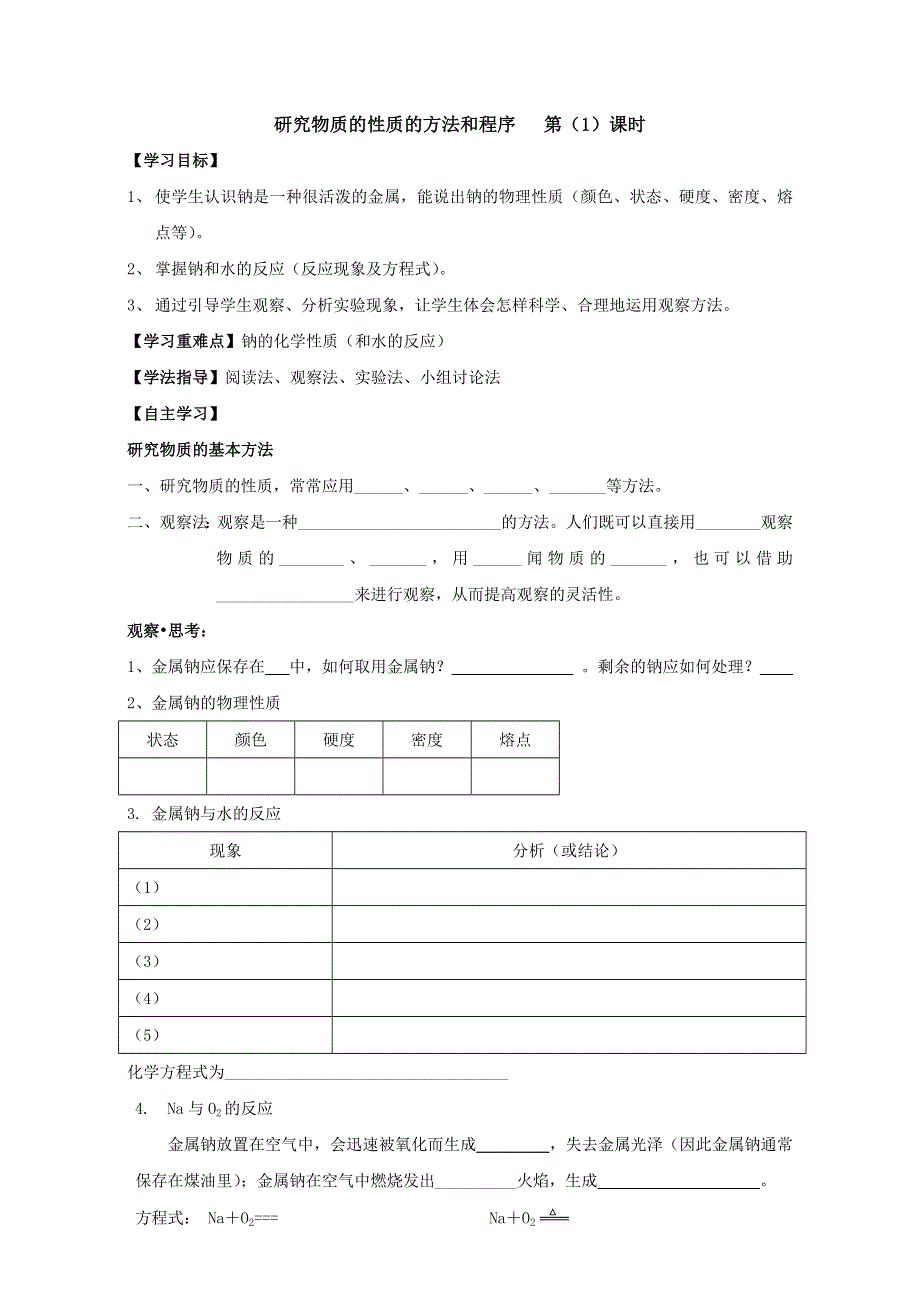 研究物质的性质的方法和程序 第（1）课时
【学习目标】
1、 使学生认识钠是一种很活泼的金属，能说出钠的物理性质（颜色、状态、硬度、密度、熔
点等）。
2、 掌握钠和水的反应（反应现象及方程式）。
3、 通过引导学生观察、分析实验现象，让学生体会怎样科学、合理地运用观察方法。
【学习重难点】钠的化学性质（和水的反应）
【学法指导】阅读法、观察法、实验法、小组讨论法
【自主学习】
研究物质的基本方法
一、研究物质的性质，常常应用______、______、______、_______等方法。
二、观察法：观察是一种_________________________的方法。人们既可以直接用________观察
物质的________、_______，用______闻物质的_______，也可以借助
_________________来进行观察，从而提高观察的灵活性。
观察•思考：
1、金属钠应保存在___中，如何取用金属钠？_______________。剩余的钠应如何处理？____
2、金属钠的物理性质
状态 颜色 硬度 密度 熔点
3. 金属钠与水的反应
现象 分析（或结论）
（1）
（2）
（3）
（4）
（5）
化学方程式为___________________________________
4. Na 与 O₂的反应
金属钠放置在空气中，会迅速被氧化而生成_________，失去金属光泽（因此金属钠通常
保存在煤油里）；金属钠在空气中燃烧发出__________火焰，生成____________________。
方程式： Na＋O₂=== Na＋O₂ △